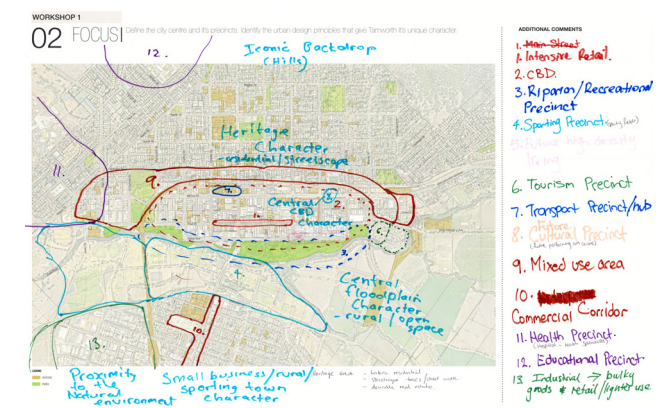 WORKSHOP 1
02 FOCUS
Define the city centre and it's precincts. Identify the urban design principles that give Tamworth it's unique character.
12.
Iconic Backdrop
(Hills)
Heritage
Character
- residential/streetscape
11.
9.
7.
8
2.
Central/
CBD
character
1.
3.
4.
Central
floodplain
Character
- rural/open
space
10.
13.
LEGEND
Proximity
to the
Natural
environment
Small business/rural/
sporting town
character
Heritage
- historic residential
ADDITIONAL COMMENTS
1. Main Street
1. Intensive Retail.
2. CBD.
3. Riparian/Recreational
Precinct
4. Sporting Precinct
5. Future high density
living
6. Tourism Precinct
7. Transport Precinct/hub
8. Future Cultural Precinct
9. Mixed use area
10.
Commercial Corridor
11. Health Precinct.
12. Educational Precinct
13 Industrial → bulky
goods * retail/lighter use